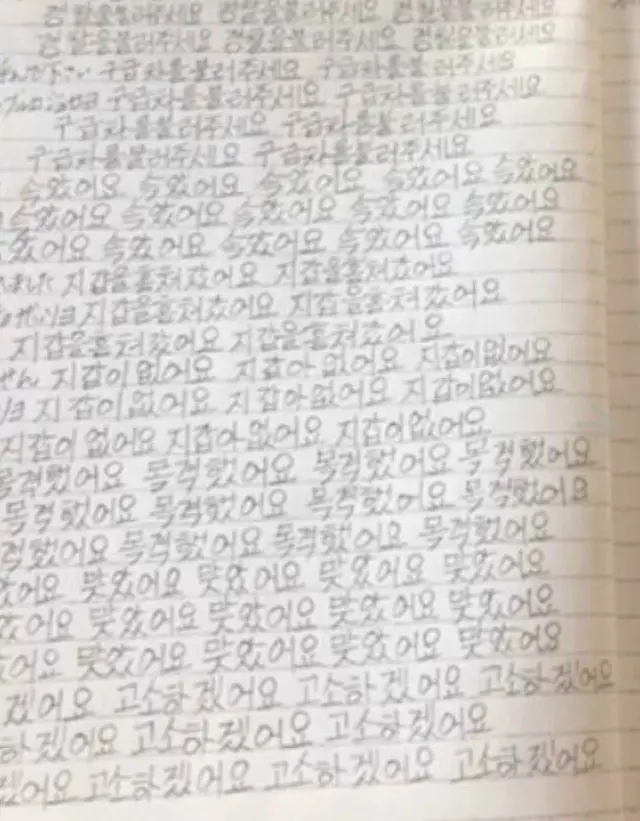 경찰을불러주세요 경찰을불러주세요 경찰을불러주세요
경찰을불러주세요 경찰을불러주세요 경찰을불러주세요
んで下さい 구급차를불러주세요 구급차를불러주세요
구급차를불러주세요 구급차를불러주세요
구급차를불러주세요 구급차를불러주세요
구급차를불러주세요 구급차를불러주세요
속았어요 속았어요 속았어요 속았어요 속았어요
속았어요 속았어요 속았어요 속았어요 속았어요
았어요 속았어요 속았어요 속았어요 속았어요
ました 지갑을훔쳐갔어요 지갑을훔쳐갔어요
지갑을훔쳐갔어요 지갑을훔쳐갔어요
지갑을훔쳐갔어요 지갑을훔쳐갔어요
せん 지갑이없어요 지갑아없어요 지갑이없어요
지갑이없어요 지갑아없어요 지갑이없어요
지갑이없어요 지갑아없어요 지갑이없어요
목격했어요 목격했어요 목격했어요 목격했어요
목격했어요 목격했어요 목격했어요 목격했어요
격했어요 목격했어요 목격했어요 목격했어요
았어요 맞았어요 맞았어요 맞았어요 맞았어요
았어요 맞았어요 맞았어요 맞았어요 맞았어요
어요 맞았어요 맞았어요 맞았어요 맞았어요
겠어요 고소하겠어요 고소하겠어요 고소하겠어요
하겠어요 고소하겠어요 고소하겠어요
겠어요 고소하겠어요 고소하겠어요 고소하겠어요